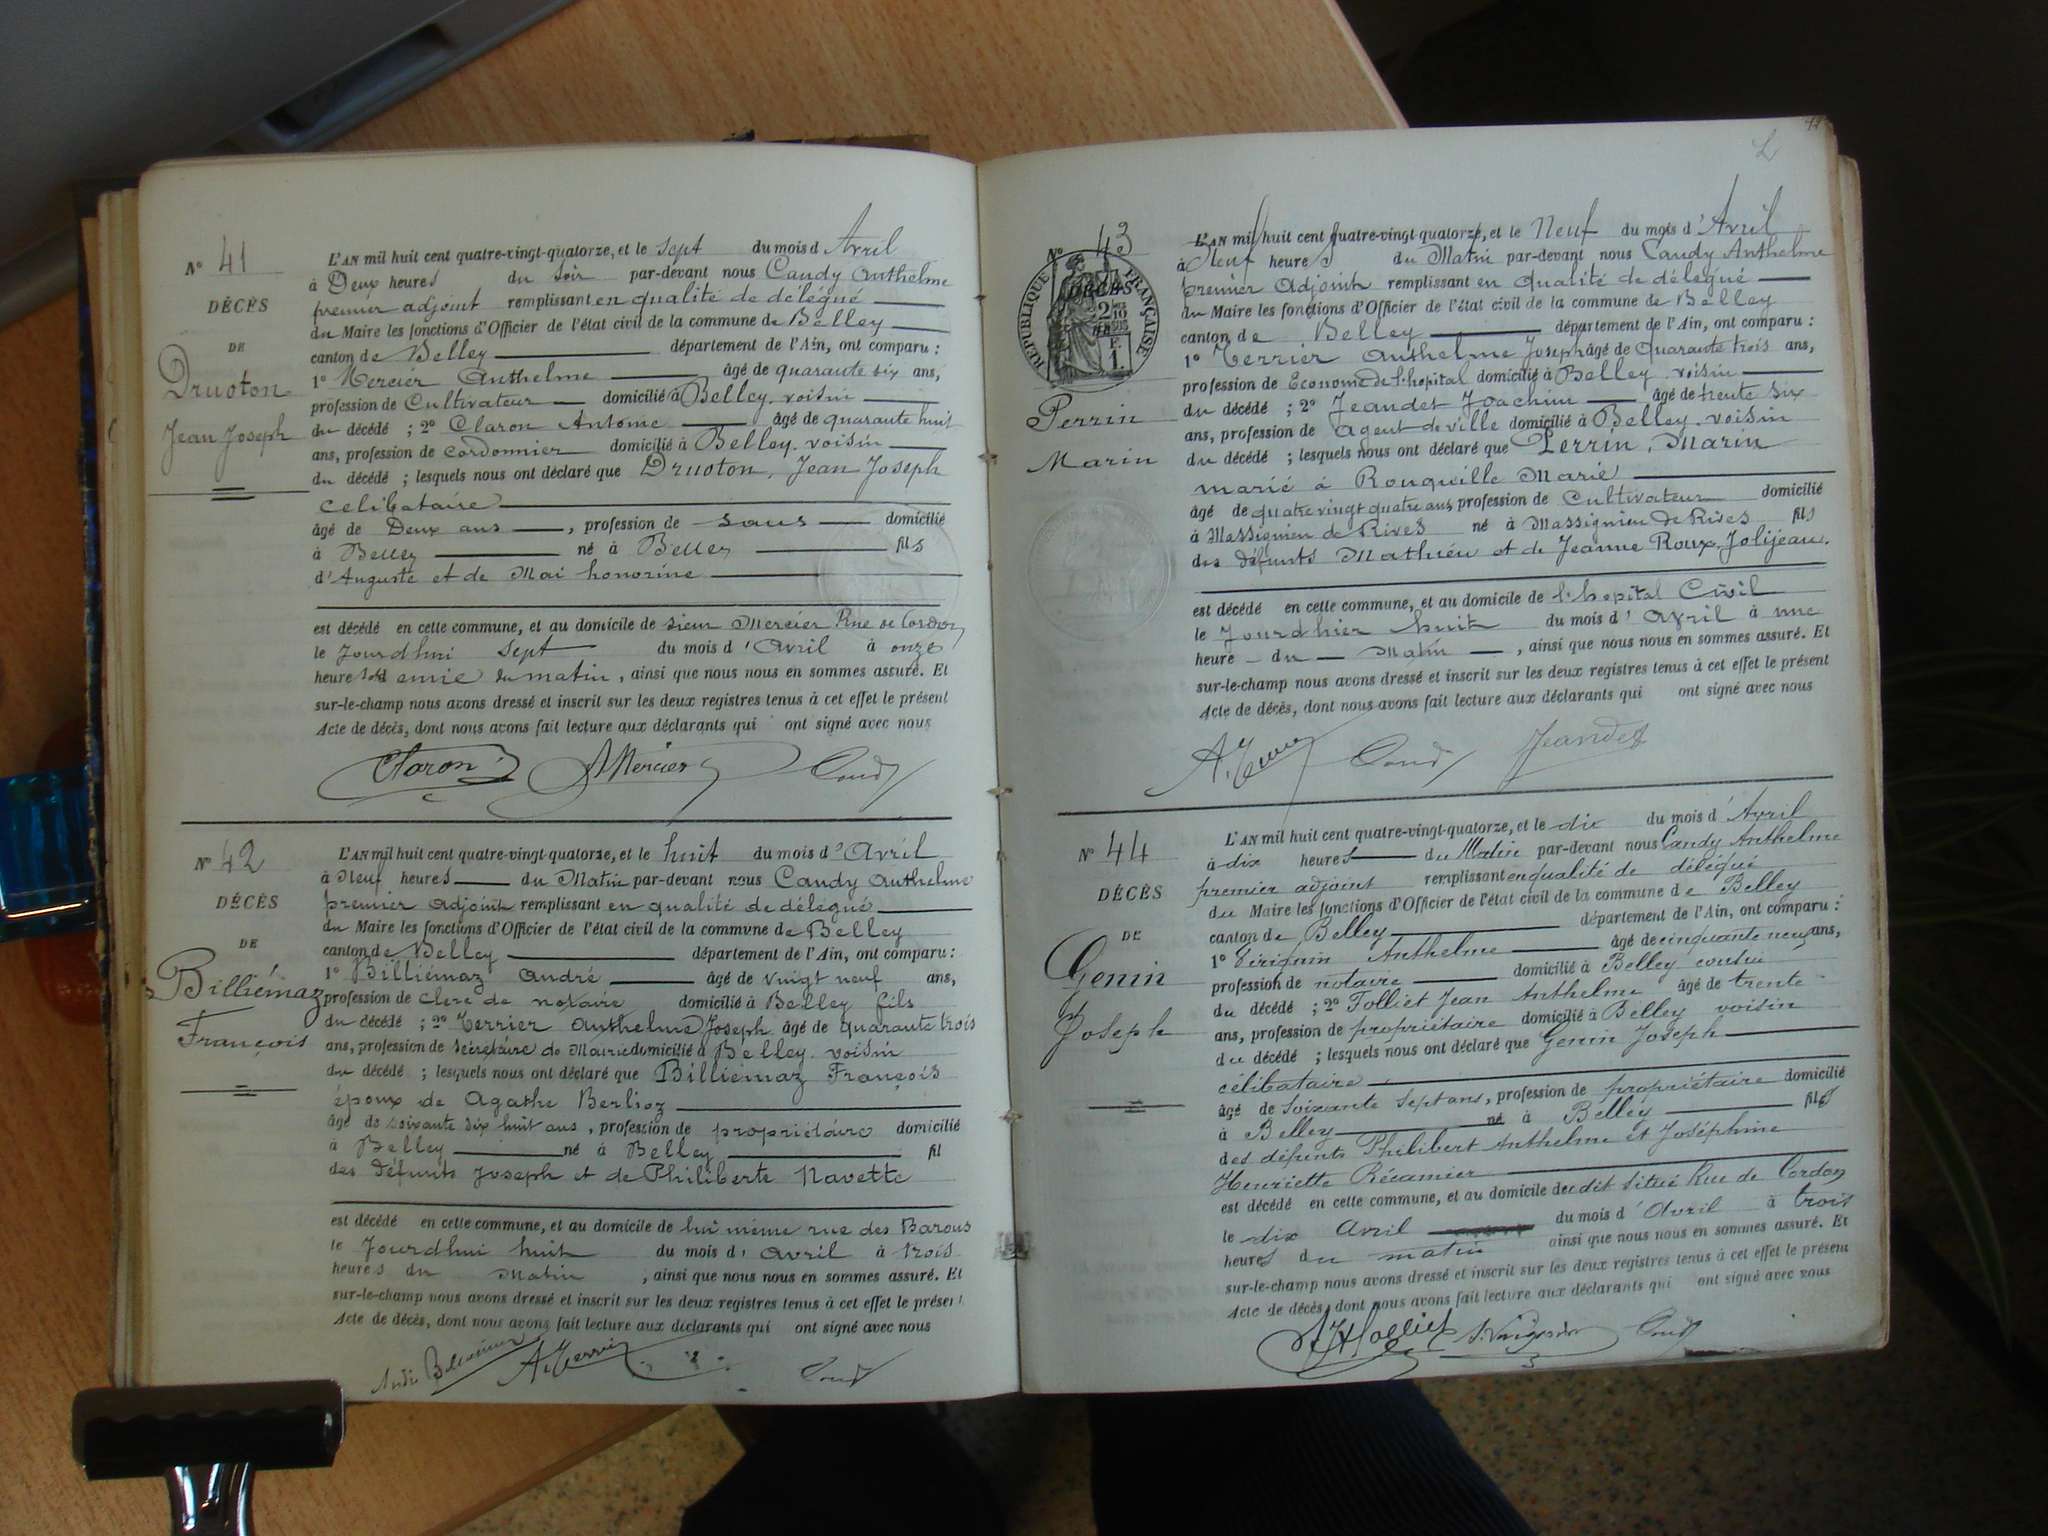 N° 41
DÉCÈS
DE
Druoton
Jean Joseph
L'AN mil huit cent quatre-vingt-quatorze, et le sept du mois d Avril
à Deux heures du soir par-devant nous Candy Anthelme
premier adjoint remplissant en qualité de délégué
du Maire les fonctions d'Officier de l'état civil de la commune de Belley
canton de Belley département de l'Ain, ont comparu :
1° Mercier Anthelme âgé de quarante six ans,
profession de Cultivateur domicilié à Belley voisin
du décédé ; 2° Claron Antoine âgé de quarante huit
ans, profession de cordonnier domicilié à Belley voisin
du décédé ; lesquels nous ont déclaré que Druoton, Jean Joseph
celibataire
âgé de Deux ans , profession de sans domicilié
à Belley né à Belley fils
d'Auguste et de Mai honorine
est décédé en cette commune, et au domicile de sieur Mercier Rue de Cordon
le Jourdhui sept du mois d'Avril à onze
heures et emie du matin, ainsi que nous nous en sommes assuré. Et
sur-le-champ nous avons dressé et inscrit sur les deux registres tenus à cet effet le présent
Acte de décès, dont nous avons fait lecture aux déclarants qui ont signé avec nous
Claron AMercier Candy
N° 42
DÉCÈS
DE
Billiémaz
François
L'AN mil huit cent quatre-vingt-quatorze, et le huit du mois d'Avril
à Neuf heures du Matin par-devant nous Candy Anthelme
premier adjoint remplissant en qualité de délégué
du Maire les fonctions d'Officier de l'état civil de la commune de Belley
canton de Belley département de l'Ain, ont comparu :
1° Billiémaz André âgé de vingt neuf ans,
profession de clerc de notaire domicilié à Belley fils
du décédé ; 2° Terrier Anthelme Joseph âgé de quarante trois
ans, profession de Secrétaire de Mairie domicilié à Belley voisin
du décédé ; lesquels nous ont déclaré que Billiémaz François
époux de Agathe Berlioz
âgé de soixante six huit ans, profession de propriétaire domicilié
à Belley né à Belley fil
des défunts Joseph et de Philiberte Navette
est décédé en cette commune, et au domicile de lui même rue des Barons
le Jourdhui huit du mois d'avril à trois
heures du Matin , ainsi que nous nous en sommes assuré. Et
sur-le-champ nous avons dressé et inscrit sur les deux registres tenus à cet effet le présent
Acte de décès, dont nous avons fait lecture aux déclarants qui ont signé avec nous
André Billiémaz A. Terrier Candy
N° 43
RÉPUBLIQUE FRANÇAISE
DÉCÈS
2/10 EN SUS
F. 1.
Perrin
Marin
L'AN mil huit cent quatre-vingt-quatorze, et le Neuf du mois d'Avril
à Neuf heures du Matin par-devant nous Candy Anthelme
premier Adjoint remplissant en qualité de délégué
du Maire les fonctions d'Officier de l'état civil de la commune de Belley
canton de Belley département de l'Ain, ont comparu :
1° Terrier Anthelme Joseph âgé de Quarante trois ans,
profession de Econome de l'hopital domicilié à Belley voisin
du décédé ; 2° Jeandet Joachim âgé de trente six
ans, profession de agent de ville domicilié à Belley voisin
du décédé ; lesquels nous ont déclaré que Perrin, Marin
marié à Rouqville Marie
âgé de quatre vingt quatre ans, profession de Cultivateur domicilié
à Massignieu de Rives né à Massignieu de Rives fils
des défunts Mathieu et de Jeanne Roux-Jolijean.
est décédé en cette commune, et au domicile de l'hopital Civil
le Jourdhier huit du mois d'Avril à une
heure du Matin , ainsi que nous nous en sommes assuré. Et
sur-le-champ nous avons dressé et inscrit sur les deux registres tenus à cet effet le présent
Acte de décès, dont nous avons fait lecture aux déclarants qui ont signé avec nous
A. Terrier Candy Jeandet
N° 44
DÉCÈS
DE
Genin
Joseph
L'AN mil huit cent quatre-vingt-quatorze, et le dix du mois d'Avril
à dix heures du Matin par-devant nous Candy Anthelme
premier adjoint remplissant en qualité de délégué
du Maire les fonctions d'Officier de l'état civil de la commune de Belley
canton de Belley département de l'Ain, ont comparu :
1° Anthelme âgé de cinquante neuf ans,
profession de notaire domicilié à Belley cousin
du décédé ; 2° Folliet Jean Anthelme âgé de trente
ans, profession de propriétaire domicilié à Belley voisin
du décédé ; lesquels nous ont déclaré que Genin Joseph
célibataire
âgé de soixante sept ans, profession de propriétaire domicilié
à Belley né à Belley fils
des défunts Philibert Anthelme et Joséphine
Henriette Récamier
est décédé en cette commune, et au domicile du dit situé Rue de Cordon
le dix Avril du mois d'Avril à trois
heures du matin ainsi que nous nous en sommes assuré. Et
sur-le-champ nous avons dressé et inscrit sur les deux registres tenus à cet effet le présent
Acte de décès, dont nous avons fait lecture aux déclarants qui ont signé avec nous
Folliet Candy